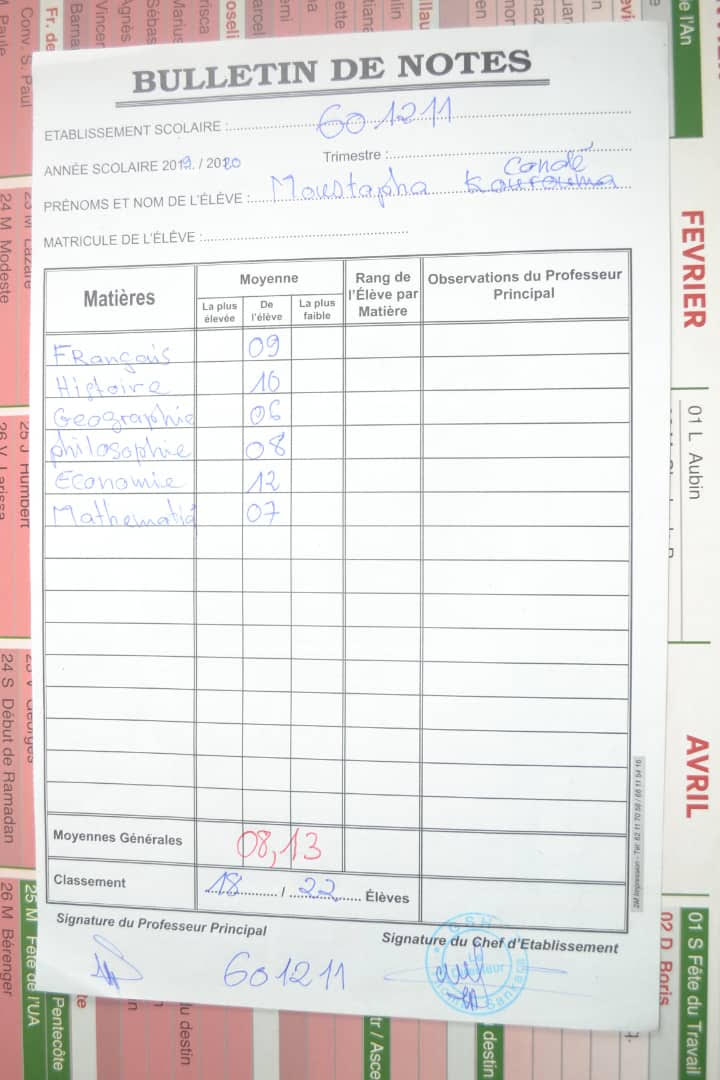 BULLETIN DE NOTES
ETABLISSEMENT SCOLAIRE : 601211
ANNÉE SCOLAIRE 2019. / 2020 Trimestre :
PRÉNOMS ET NOM DE L'ÉLÈVE : Moustapha Kourouma Condé
MATRICULE DE L'ÉLÈVE :
Matières Moyenne Rang de l'Élève par Matière Observations du Professeur Principal
La plus élevée De l'élève La plus faible
FRançais 09
Histoire 10
Geographie 06
philosophie 08
Economie 12
Mathematiq 07
Moyennes Générales 08,13
Classement 18 / 22 Élèves
Signature du Professeur Principal Signature du Chef d'Etablissement
601211
FEVRIER
01 L Aubin
AVRIL
01 S Fête du Travail
02 D Boris
de l'An
Conv. S. Paul
24 M Modeste
25 J Humbert
24 S Début de Ramadan
26 M Bérenger
25 M Fête de l'UA
Pentecôte